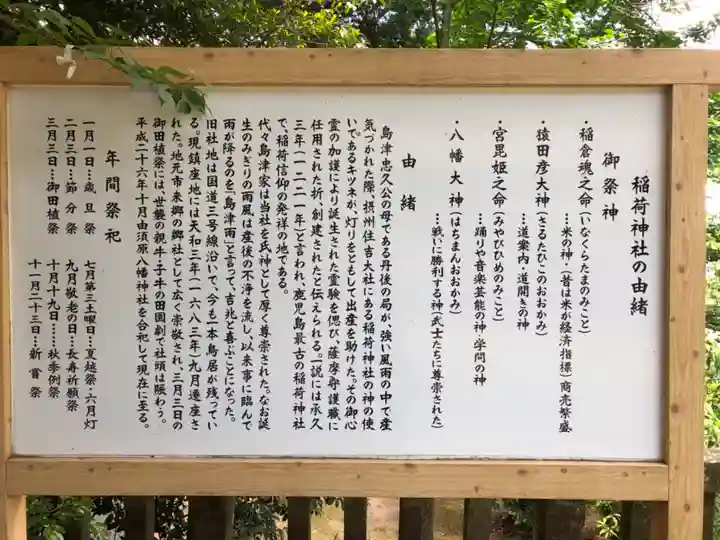 稲荷神社の由緒
御祭神
・稲倉魂之命(いなくらたまのみこと)
…米の神・(昔は米が経済指標)商売繁盛
・猿田彦大神(さるたひこのおおかみ)
…道案内・道開きの神
・宮毘姫之命(みやびひめのみこと)
…踊りや音楽芸能の神・学問の神
・八幡大神(はちまんおおかみ)
…戦いに勝利する神(武士たちに尊崇された)
由緒
島津忠久公の母である丹後の局が、強い風雨の中で産
気づかれた際、摂州住吉大社にある稲荷神社の神の使
いであるキツネが、灯りをともして出産を助けた。その御心
霊の加護により誕生された霊験を偲び、薩摩守護職に
任用された折、創建されたと伝えられる。一説には承久
三年(一二二一年)と言われ、鹿児島最古の稲荷神社
で、稲荷信仰の発祥の地である。
代々島津家は当社を氏神として厚く尊崇された。なお誕
生のみぎりの雨風は産後の不浄を流し、以来事に臨んで
雨が降るのを「島津雨」と言って、吉兆と喜ぶことになった。
旧社地は国道三号線沿いで、今も一本鳥居が残ってい
る。現鎮座地には天和三年(一六八三年)九月遷座さ
れた。地元市来郷の郷社として広く崇敬され、三月三日の
御田植祭には、世襲の親牛・子牛の田園劇で社頭は賑わう。
平成二十六年十月由須原八幡神社を合祀して現在に至る。
年間祭祀
一月一日…歳旦祭
二月三日…節分祭
三月三日…御田植祭
七月第三土曜日…夏越祭・六月灯
九月敬老の日…長寿祈願祭
十月十九日……秋季例祭
十一月二十三日…新嘗祭